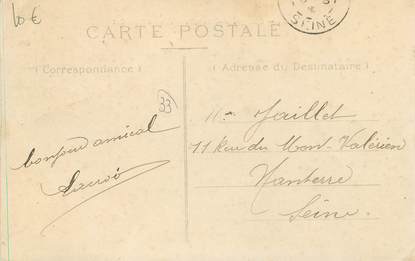 10 €
SEINE
CARTE POSTALE
(Correspondance)
(Adresse du Destinataire)
33
Jaillet
11 Rue du Mont-Valérien
Nanterre
Seine.
bonjour amical